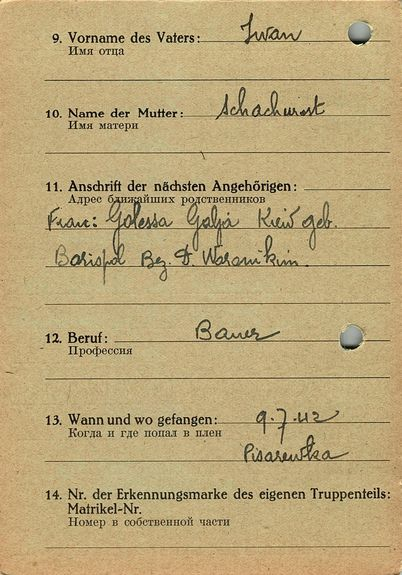 9. Vorname des Vaters: Iwan
Имя отца
10. Name der Mutter:
Имя матери
11. Anschrift der nächsten Angehörigen:
Адрес ближайших родственников
Frau: Golessa Galja Kiew geb.
Borispol Bez. D.
12. Beruf: Bauer
Профессия
13. Wann und wo gefangen: 9.7.42
Когда и где попал в плен
Pisarewka
14. Nr. der Erkennungsmarke des eigenen Truppenteils:
Matrikel-Nr.
Номер в собственной части